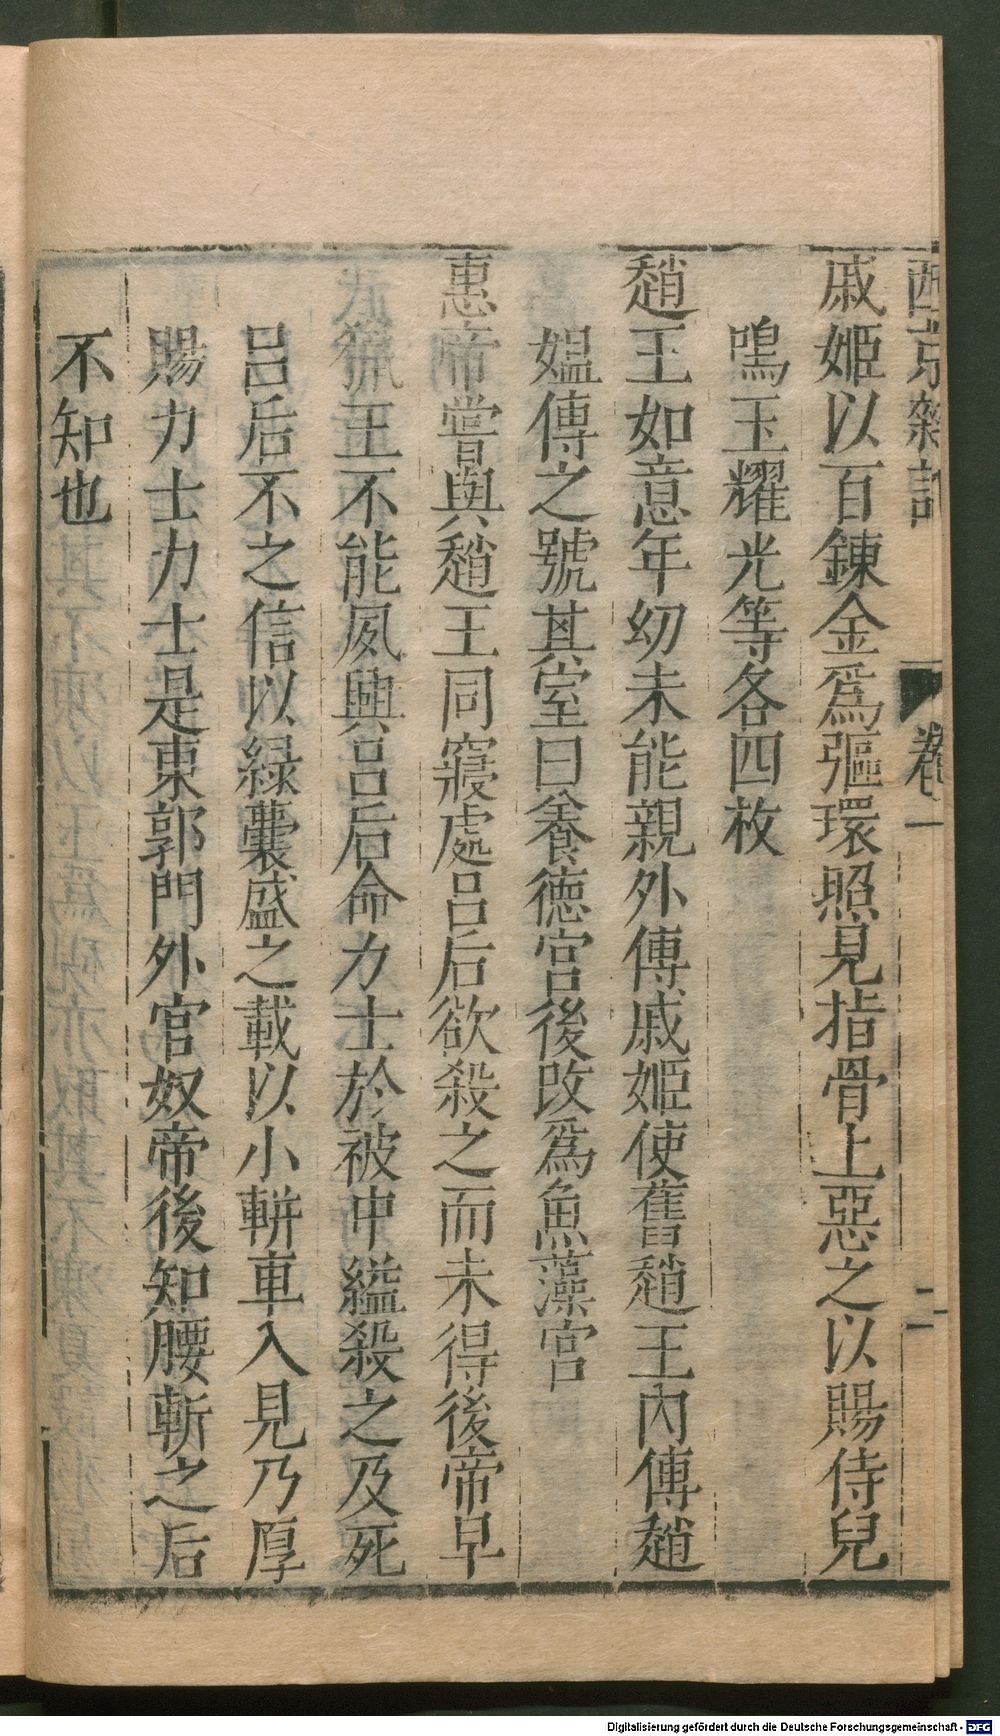 西京雜記 卷一 二
戚姬以百鍊金爲彄環照見指骨上惡之以賜侍兒
鳴玉耀光等各四枚
趙王如意年幼未能親外傅戚姬使舊趙王內傅趙
媼傅之號其室曰養德宮後改爲魚藻宮
惠帝嘗與趙王同寢處呂后欲殺之而未得後帝早
獵王不能夙興呂后命力士於被中縊殺之及死
呂后不之信以緑囊盛之載以小軿車入見乃厚
賜力士力士是東郭門外官奴帝後知腰斬之后
不知也
Digitalisierung gefördert durch die Deutsche Forschungsgemeinschaft - DFG